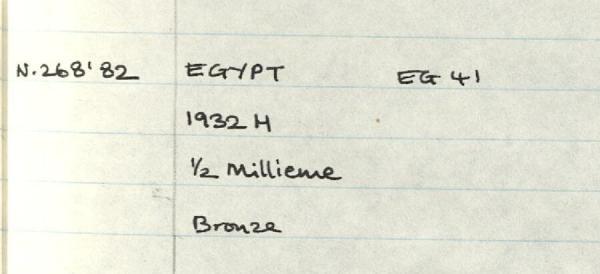 N.268'82 EGYPT EG 41
1932 H
1/2 Millieme
Bronze